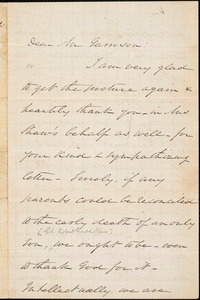 Dear Mr Garrison:
I am very glad
to get the picture again &
heartily thank you, in Mrs
Shaw's behalf as well, for
your kind & sympathizing
letter - Surely, if any
parents could be reconciled
to the early death of an only
son, we ought to be - even
to thank God for it -
Intellectually we are